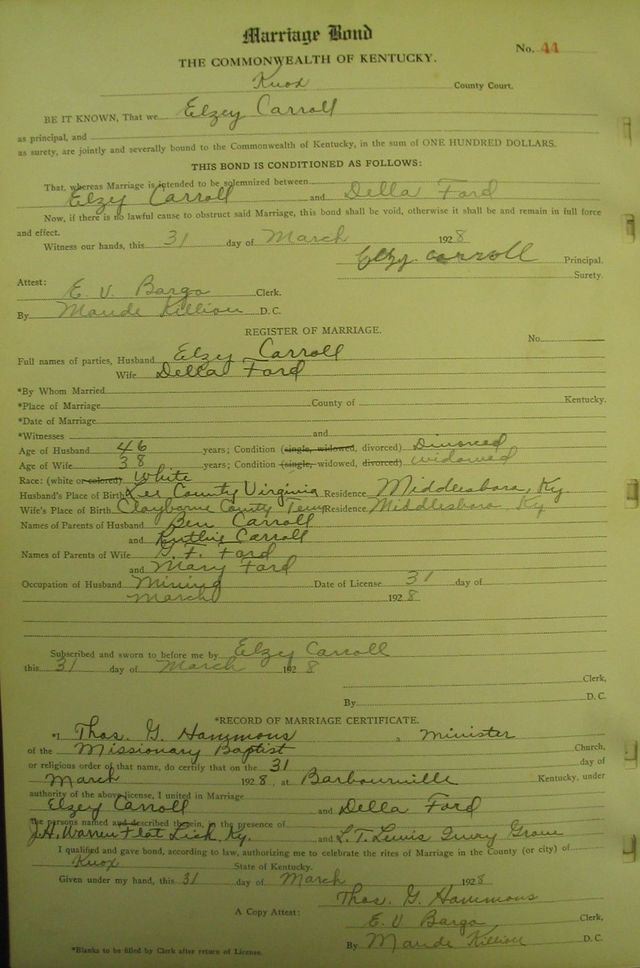 Marriage Bond
No. 44
THE COMMONWEALTH OF KENTUCKY.
Knox County Court.
BE IT KNOWN, That we Elzey Carroll
as principal, and
as surety, are jointly and severally bound to the Commonwealth of Kentucky, in the sum of ONE HUNDRED DOLLARS.
THIS BOND IS CONDITIONED AS FOLLOWS:
That, whereas Marriage is intended to be solemnized between
Elzy Carroll and Della Ford
Now, if there is no lawful cause to obstruct said Marriage, this bond shall be void, otherwise it shall be and remain in full force
and effect.
Witness our hands, this 31 day of March 1928
Elzy Carroll Principal.
Surety.
Attest:
E. V. Bargo Clerk.
By Maude Killion D. C.
REGISTER OF MARRIAGE.
No.
Full names of parties, Husband Elzey Carroll
Wife Della Ford
*By Whom Married
*Place of Marriage County of Kentucky.
*Date of Marriage
*Witnesses and
Age of Husband 46 years; Condition (single, widowed, divorced) Divorced
Age of Wife 38 years; Condition (single, widowed, divorced) widowed
Race: (white or colored) White
Husband's Place of Birth Lee County Virginia Residence Middlesboro, Ky.
Wife's Place of Birth Clayborne County Tenn Residence Middlesboro, Ky
Names of Parents of Husband Ben Carroll
and Ruthie Carroll
Names of Parents of Wife F. Ford
and Mary Ford
Occupation of Husband Mining Date of License 31 day of
March 1928
Subscribed and sworn to before me by Elzey Carroll
this 31 day of March 1928
Clerk,
By D. C.
*RECORD OF MARRIAGE CERTIFICATE.
*I Thos. G. Hammons a Minister
of the Missionary Baptist Church,
or religious order of that name, do certify that on the 31 day of
March 1928, at Barbourville Kentucky, under
authority of the above license, I united in Marriage
Elzey Carroll and Della Ford
the persons named and described therein, in the presence of
J.H. Warren Flat Lick Ky. and L. T. Lewis Grove
I qualified and gave bond, according to law, authorizing me to celebrate the rites of Marriage in the County (or city) of
Knox State of Kentucky.
Given under my hand, this 31 day of March 1928
Thos. G. Hammons
A Copy Attest: E. V Bargo Clerk,
By Maude Killion D. C.
*Blanks to be filled by Clerk after return of License.